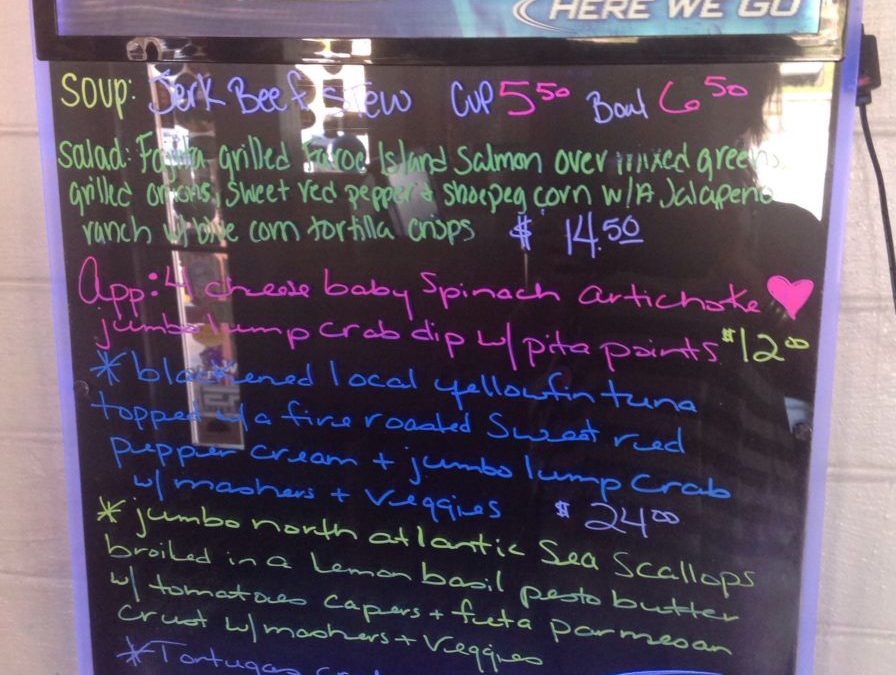 HERE WE GO
SOUP: Jerk Beef Stew Cup 5 50 Bowl 6 50
Salad: Fajita grilled Faroe Island Salmon over mixed greens,
grilled onions, sweet red pepper + shoepeg corn w/ A Jalapeno
ranch w/ blue corn tortilla crisps $ 14.50
App: 4 cheese baby Spinach artichoke
jumbo lump crab dip w/ pita points $12 00
* blackened local yellowfin tuna
topped w/ a fire roasted Sweet red
pepper cream + jumbo lump Crab
w/ mashers + Veggies $ 24 00
* jumbo north atlantic Sea Scallops
broiled in a Lemon basil pesto butter
w/ tomatoes capers + feta parmesan
crust w/ mashers + Veggies
* Tortugas